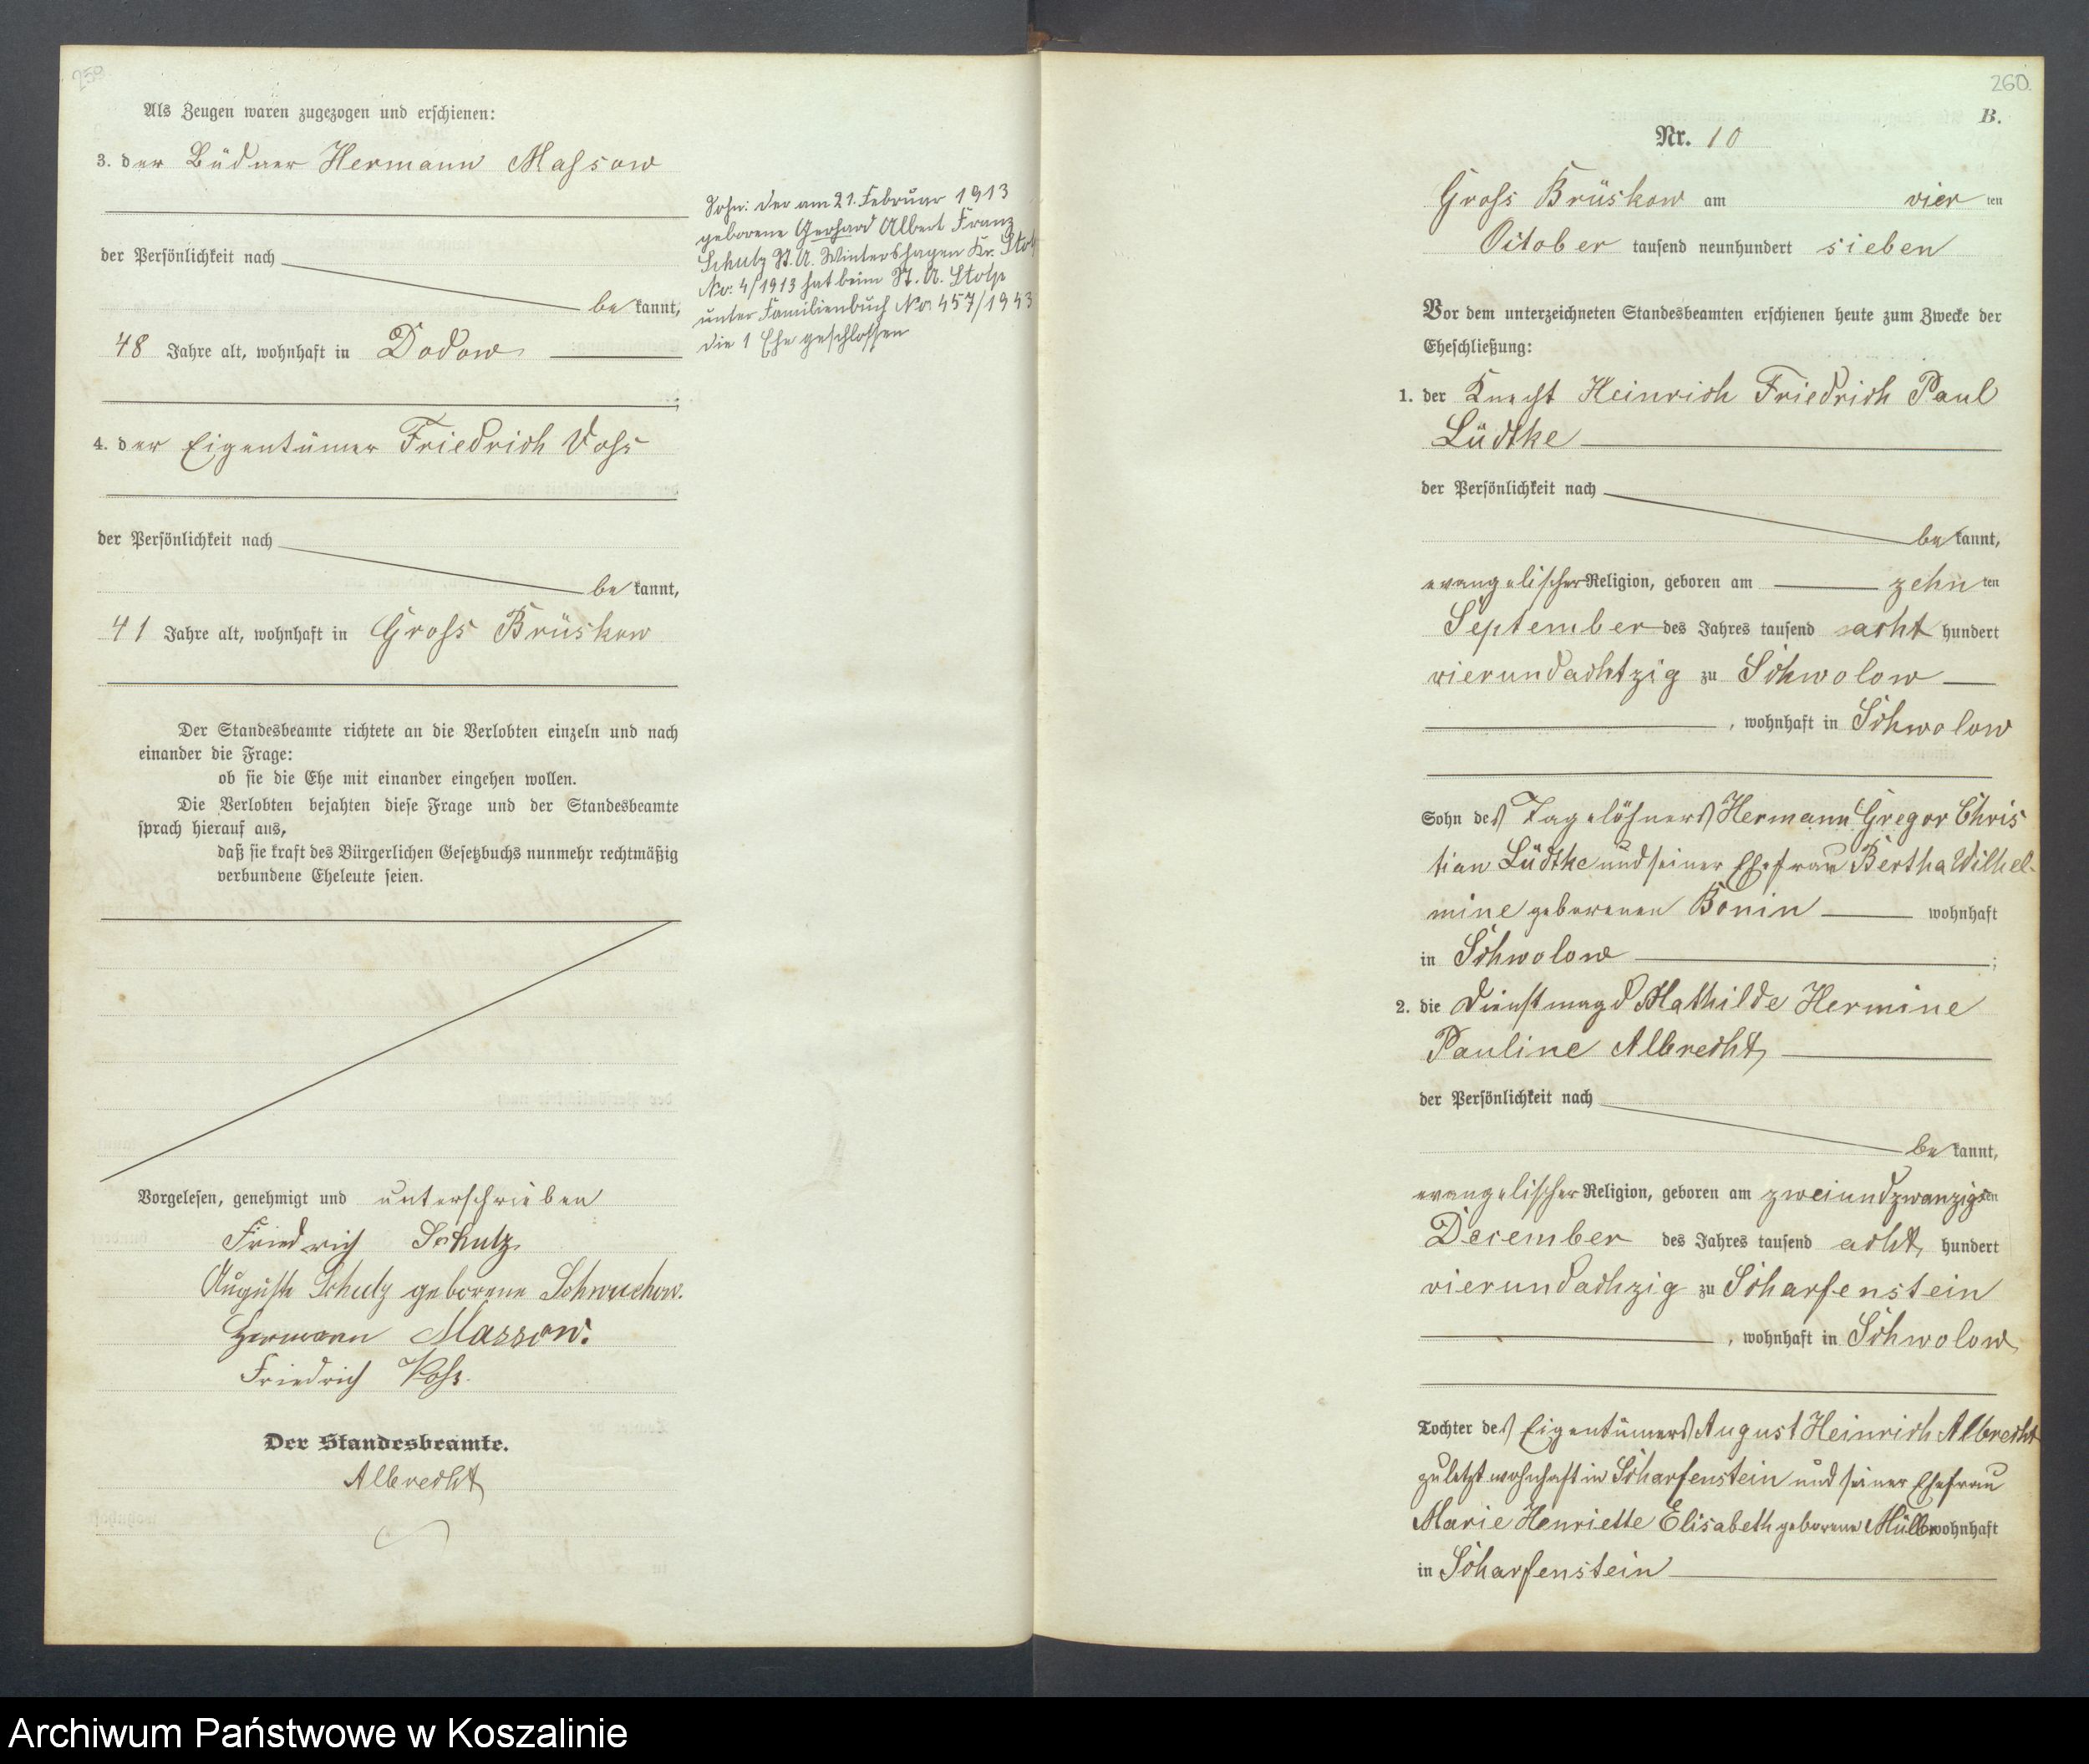 259
Als Zeugen waren zugezogen und erschienen:
3. der Büdner Hermann Massow
der Persönlichkeit nach
bekannt,
48 Jahre alt, wohnhaft in Dodow
;
4. der Eigentümer Friedrich Voss
der Persönlichkeit nach
bekannt,
41 Jahre alt, wohnhaft in Gross Brüskow
Der Standesbeamte richtete an die Verlobten einzeln und nach
einander die Frage:
ob sie die Ehe mit einander eingehen wollen.
Die Verlobten bejahten diese Frage und der Standesbeamte
sprach hierauf aus,
daß sie kraft des Bürgerlichen Gesetzbuchs nunmehr rechtmäßig
verbundene Eheleute seien.
Vorgelesen, genehmigt und unterschrieben
Friedrich Schulz
Auguste Schulz geborene Schwuchow.
Hermann Massow.
Friedrich Voss.
Der Standesbeamte.
Albrecht
Sohn: der am 21. Februar 1913
geborene Gerhard Albert Franz
Schulz St. A. Wintershagen Kr. Stolp
No: 4/1913 hat beim St. A. Stolp
unter Familienbuch No 457/1943
die 1 Ehe geschlossen
260.
B.
Nr. 10
Gross Brüskow am vier ten
October tausend neunhundert sieben
Vor dem unterzeichneten Standesbeamten erschienen heute zum Zwecke der
Eheschließung:
1. der Knecht Heinrich Friedrich Paul
Lüdtke
der Persönlichkeit nach
bekannt,
evangelischer Religion, geboren am zehn ten
September des Jahres tausend acht hundert
vierundachtzig zu Schwolow
, wohnhaft in Schwolow
Sohn des Tagelöhners Hermann Gregor Chris
tian Lüdtke und seiner Ehefrau Bertha Wilhel-
mine geborenen Bonin wohnhaft
in Schwolow ;
2. die Dienstmagd Mathilde Hermine
Pauline Albrecht,
der Persönlichkeit nach
bekannt,
evangelischer Religion, geboren am zweiundzwanzigsten
December des Jahres tausend acht hundert
vierundachzig zu Scharfenstein
, wohnhaft in Schwolow
Tochter des Eigentümers August Heinrich Albrecht
zuletzt wohnhaft in Scharfenstein und seiner Ehefrau
Marie Henriette Elisabeth geborene Müller wohnhaft
in Scharfenstein
Archiwum Państwowe w Koszalinie